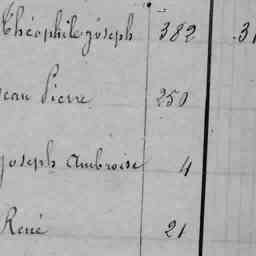 Théophile joseph 382 .31
Jean Pierre 250
joseph Ambroise 4
René 21